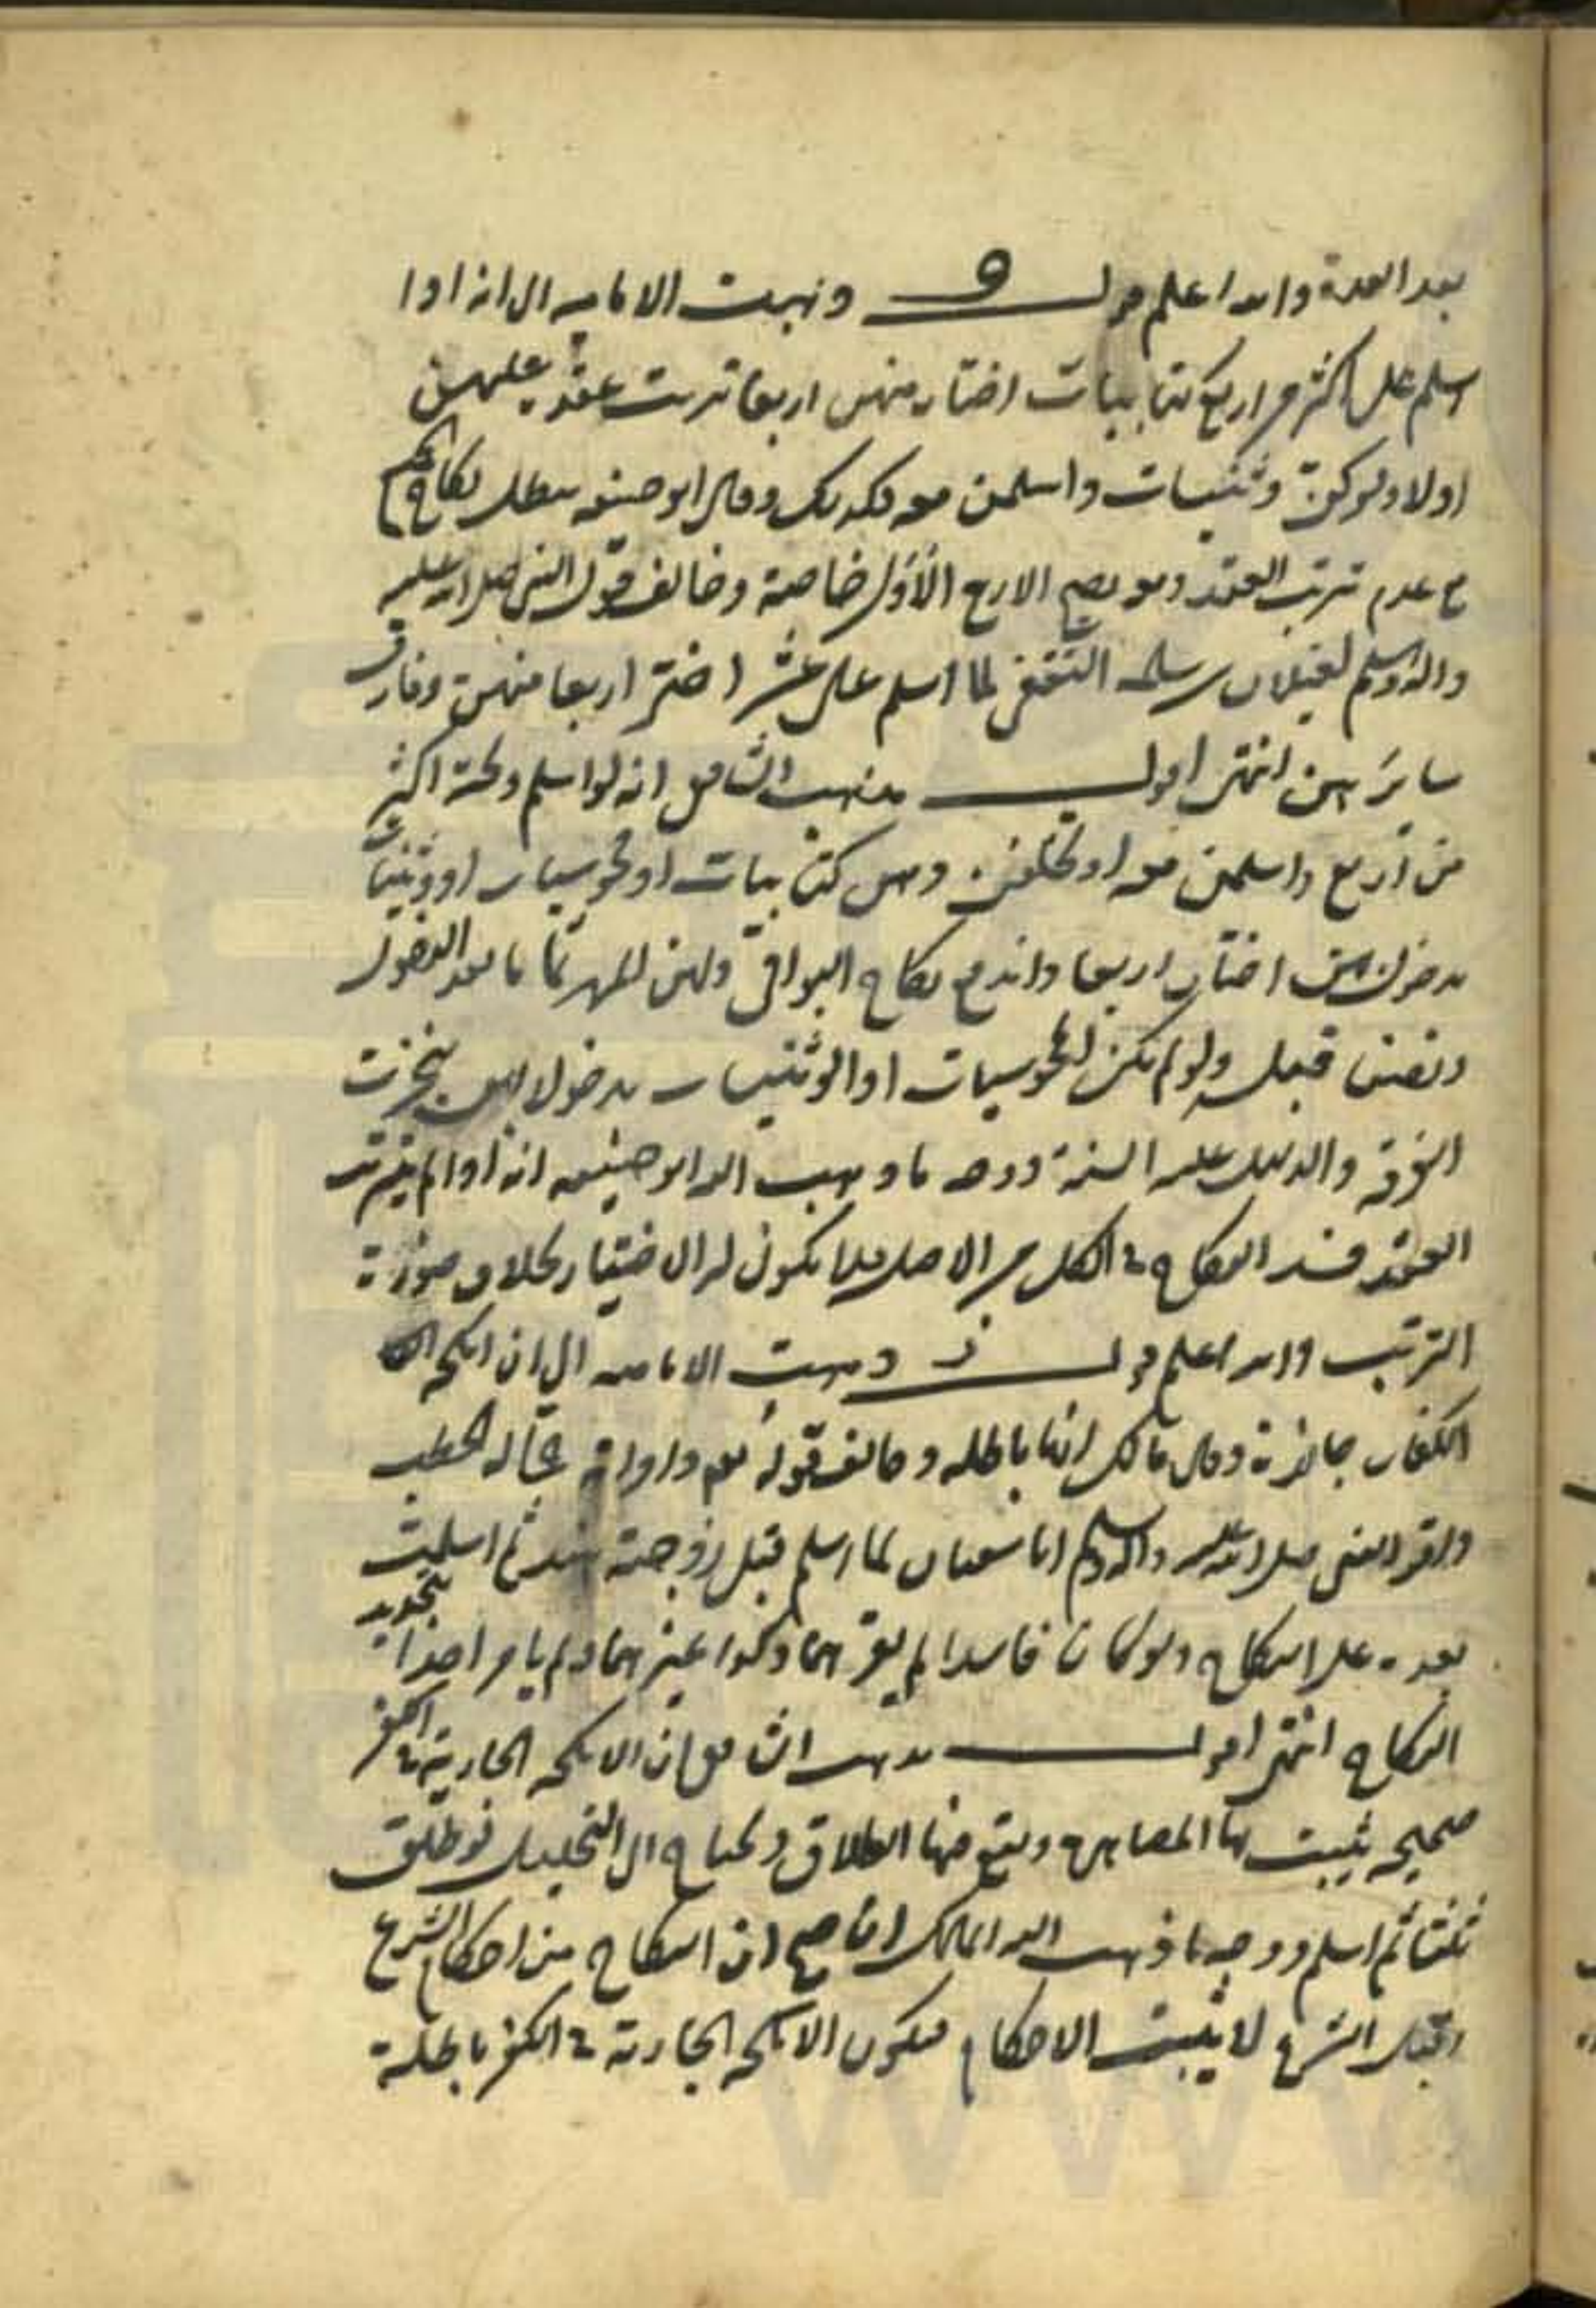 بعد العدة والله اعلم قوله و ذهبت الامامية الى انه اذا
اسلم على اكثر من اربع كتابيات اختار منهن اربعا ترتب عقده عليهن
اولا ولو كن وثنيات واسلمن معه فكذلك وقال ابو حنيفه يبطل نكاحهن
مع عدم ترتب العقد ومعه يصح الاربع الاول خاصة وخالف قول النبي صلى الله عليه
واله وسلم لغيلان بن سلمه الثقفي لما اسلم على عشر اختر اربعا منهن وفارق
سائرهن انتهى اقول مذهب الشافعي انه لو اسلم وتحته اكثر
من اربع واسلمن معه او تخلفن وهن كتابيات او مجوسيات او وثنيات
مدخول بهن اختار اربعا واندفع نكاح البواقي ولهن المهر تماما بعد الدخول
ونصف قبله ولو لم تكن المجوسيات او الوثنيات مدخولا بهن تنجزت
الفرقه والدليل عليه السنة ووجه ما ذهب اليه ابو حنيفه انه اذا لم يترتب
العقد فسد النكاح في الكل من الاصل فلا يكون له الاختيار بخلاف صورة
الترتيب والله اعلم قوله ز ذهبت الامامية الى ان انكحه
الكفار جائزة وقال مالك انها باطله وخالف قوله تعالى وامراته حمالة الحطب
واقر النبي صلى الله عليه واله وسلم ابا سفيان لما اسلم قبل زوجته هند ثم اسلمت
بعده على النكاح ولو كان فاسدا لم يقرهما وكذا غيرهما ولم يامر احدا بتجديد
النكاح انتهى اقول مذهب الشافعي ان الانكحه الجارية في الكفر
صحيحه يثبت بها المصاهرة ويقع فيها الطلاق ويحتاج الى التحليل لو طلق
ثلثا ثم اسلم ووجه ما ذهب اليه المالك ان صح ان النكاح من احكام الشرع
وقبل الشرع لا يثبت الاحكام فيكون الانكحه الجارية في الكفر باطلة